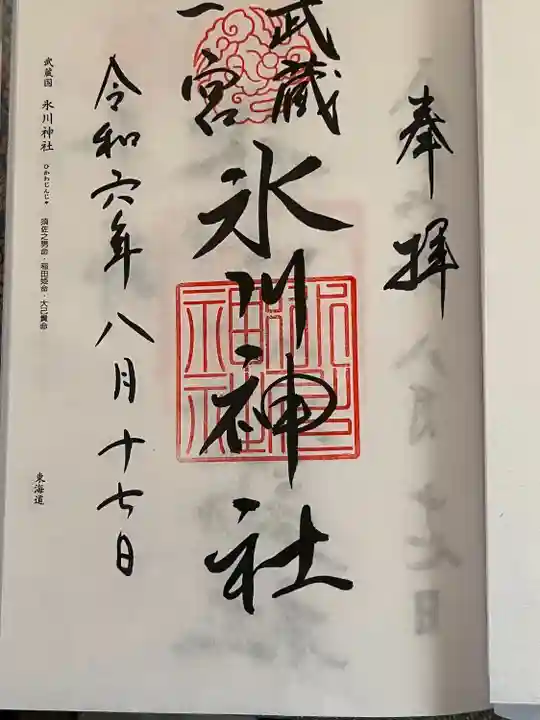 奉拝
武蔵
一宮
氷川神社
令和六年八月十七日
武蔵国 氷川神社 ひかわじんじゃ 須佐之男命・稲田姫命・大己貴命
東海道